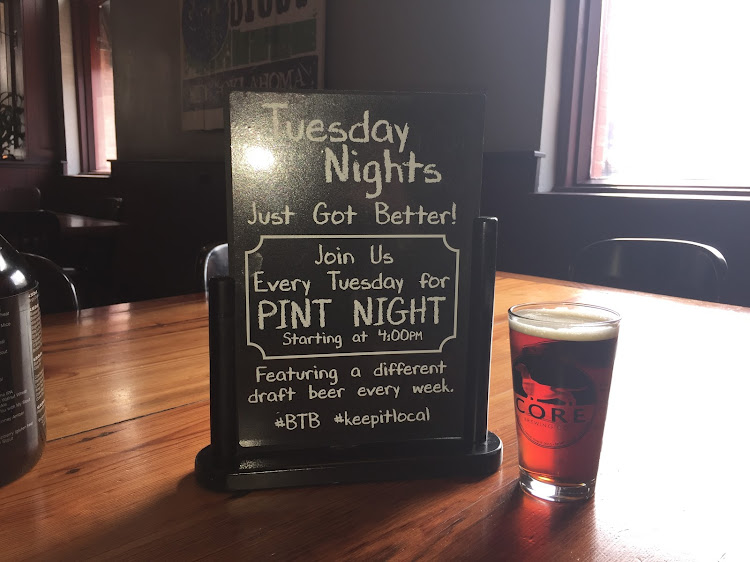 Tuesday
Nights
Just Got Better!
Join Us
Every Tuesday for
PINT NIGHT
Starting at 4:00PM
Featuring a different
draft beer every week.
#BTB #keepitlocal
CORE